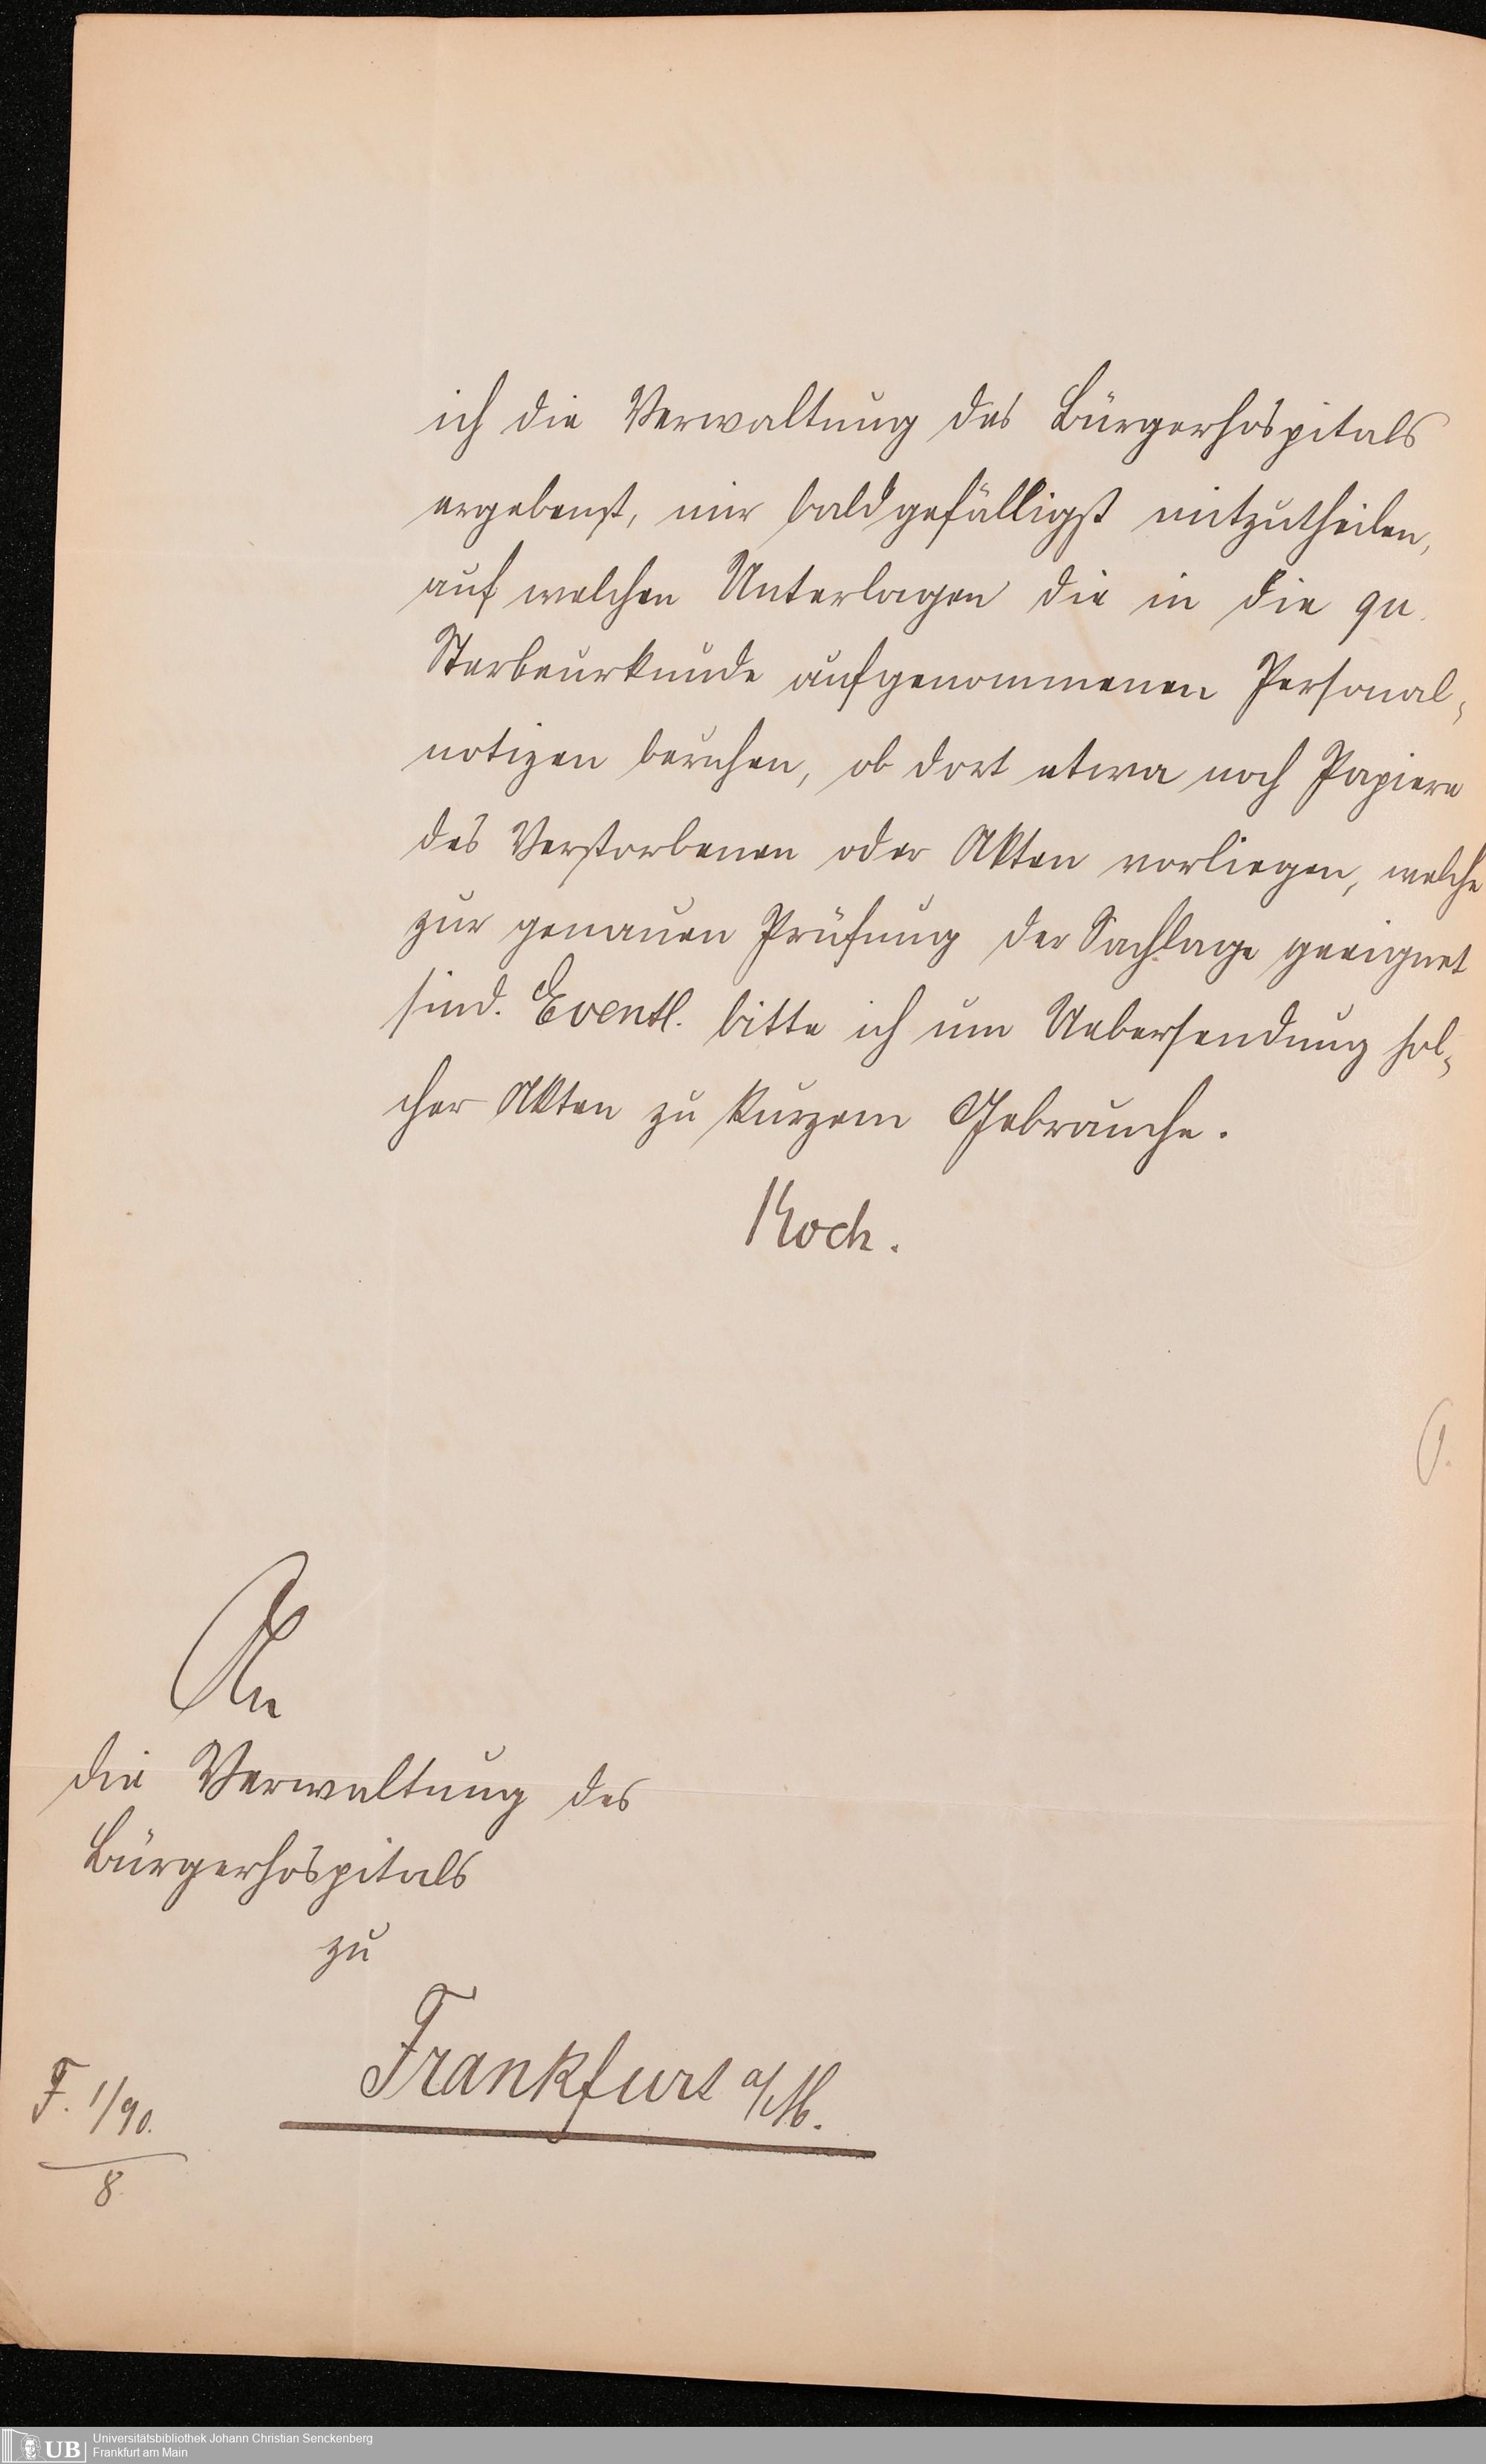 ich die Verwaltung des Bürgerhospitals
ergebenst, mir baldgefälligst mitzutheilen,
auf welchen Unterlagen die in die qu.
Sterbeurkunde aufgenommenen Personal-
notizen beruhen, ob dort etwa noch Papiere
des Verstorbenen oder Akten vorliegen, welche
zur genauen Prüfung der Sachlage geeignet
sind. Eventl. bitte ich um Uebersendung sol-
cher Akten zu kurzem Gebrauche.
Koch.
An
die Verwaltung des
Bürgerhospitals
zu
Frankfurt a/M.
F. 1/90.
8
UB
Universitätsbibliothek Johann Christian Senckenberg
Frankfurt am Main